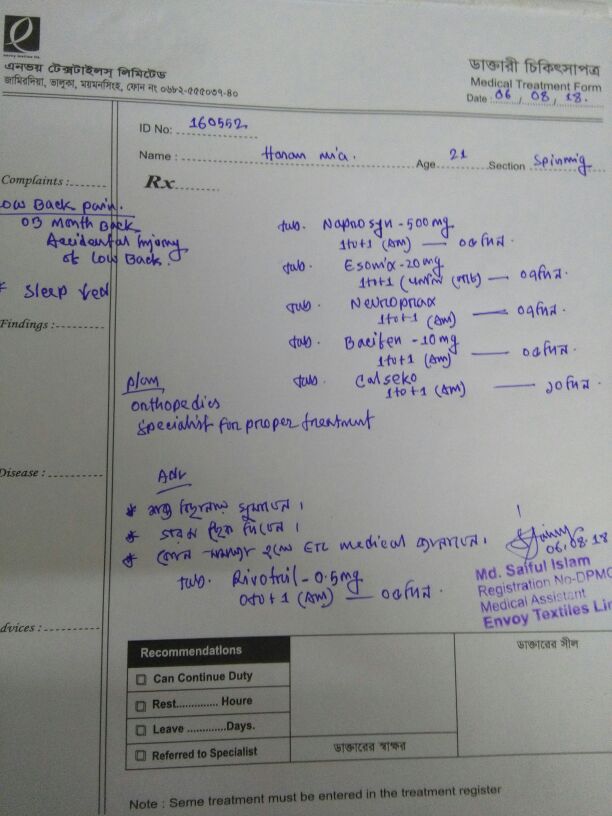 এনভয় টেক্সটাইলস্ লিমিটেড
জামিরদিয়া, ভালুকা, ময়মনসিংহ, ফোন নং ০৬৮২-৫৫৫০৩৭-৪০
ডাক্তারী চিকিৎসাপত্র
Medical Treatment Form
Date 06 / 08 / 18.
ID No: 160552
Name : Hanan mia. Age 21 Section Spinnig
Complaints :
Rx
Low Back pain.
03 month Back
Accidental Injury
of Low Back.
* Sleep ↓ed
tab. Naprosyn - 500 mg
1+0+1 (Am) — ০৫দিন.
tab. Esomix - 20 mg
1+0+1 — ০৭দিন.
tab. Neuropriax
1+0+1 (Am) — ০৭দিন.
tab. Baciten - 10 mg
1+0+1 (Am) — ০৫দিন.
tab. Calseko
1+0+1 (Am) — ১০দিন.
Findings :
plan
orthopedics
specialist for proper treatment
Disease :
Adv
* শক্ত বিছানায় ঘুমাবেন।
* গরম ছেঁক দিবেন।
* কোন সমস্যা হলে ETL medical জানাবেন।
tab. Rivotril - 0.5 mg
0+0+1 (Am) — ০৫দিন.
06.08.18
Md. Saiful Islam
Registration No-DPMC
Medical Assistant
Envoy Textiles Lim
dvices :
Recommendations
Can Continue Duty
Rest.............. Houre
Leave .............Days.
Referred to Specialist
ডাক্তারের স্বাক্ষর
ডাক্তারের সীল
Note : Seme treatment must be entered in the treatment register